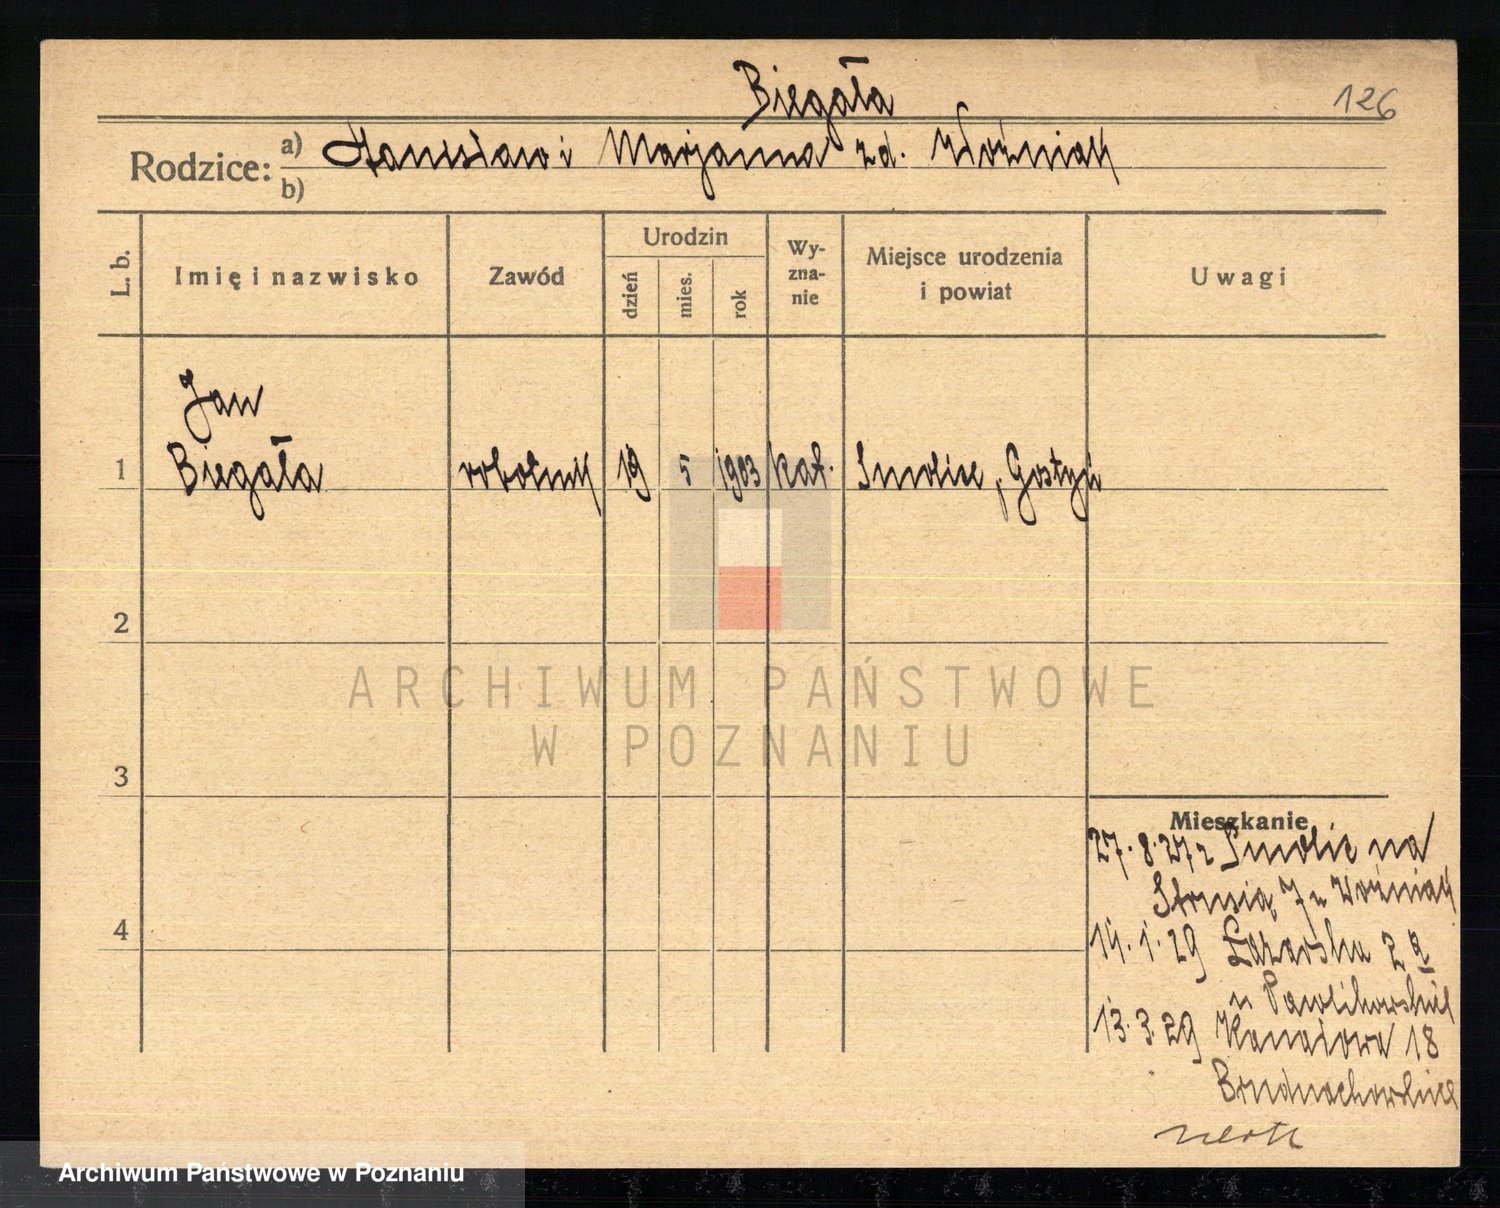 Biegała
126
Rodzice: a) Stanisław i Marjanna zd. Woźniak
b)
L. b.
Imię i nazwisko
Zawód
Urodzin
dzień
mies.
rok
Wy-
zna-
nie
Miejsce urodzenia
i powiat
Uwagi
Jan
1 Biegała robotnik 19 5 1903 kat. Smolice, Gostyń
2
ARCHIWUM PAŃSTWOWE
W POZNANIU
3
Mieszkanie
27.8.27 z Smolic na
Strusia 7 u Woźniak
4
14.1.29 Łazarska 2a
u Pawlikowskiej
13.3.29 Kanałowa 18
Archiwum Państwowe w Poznaniu